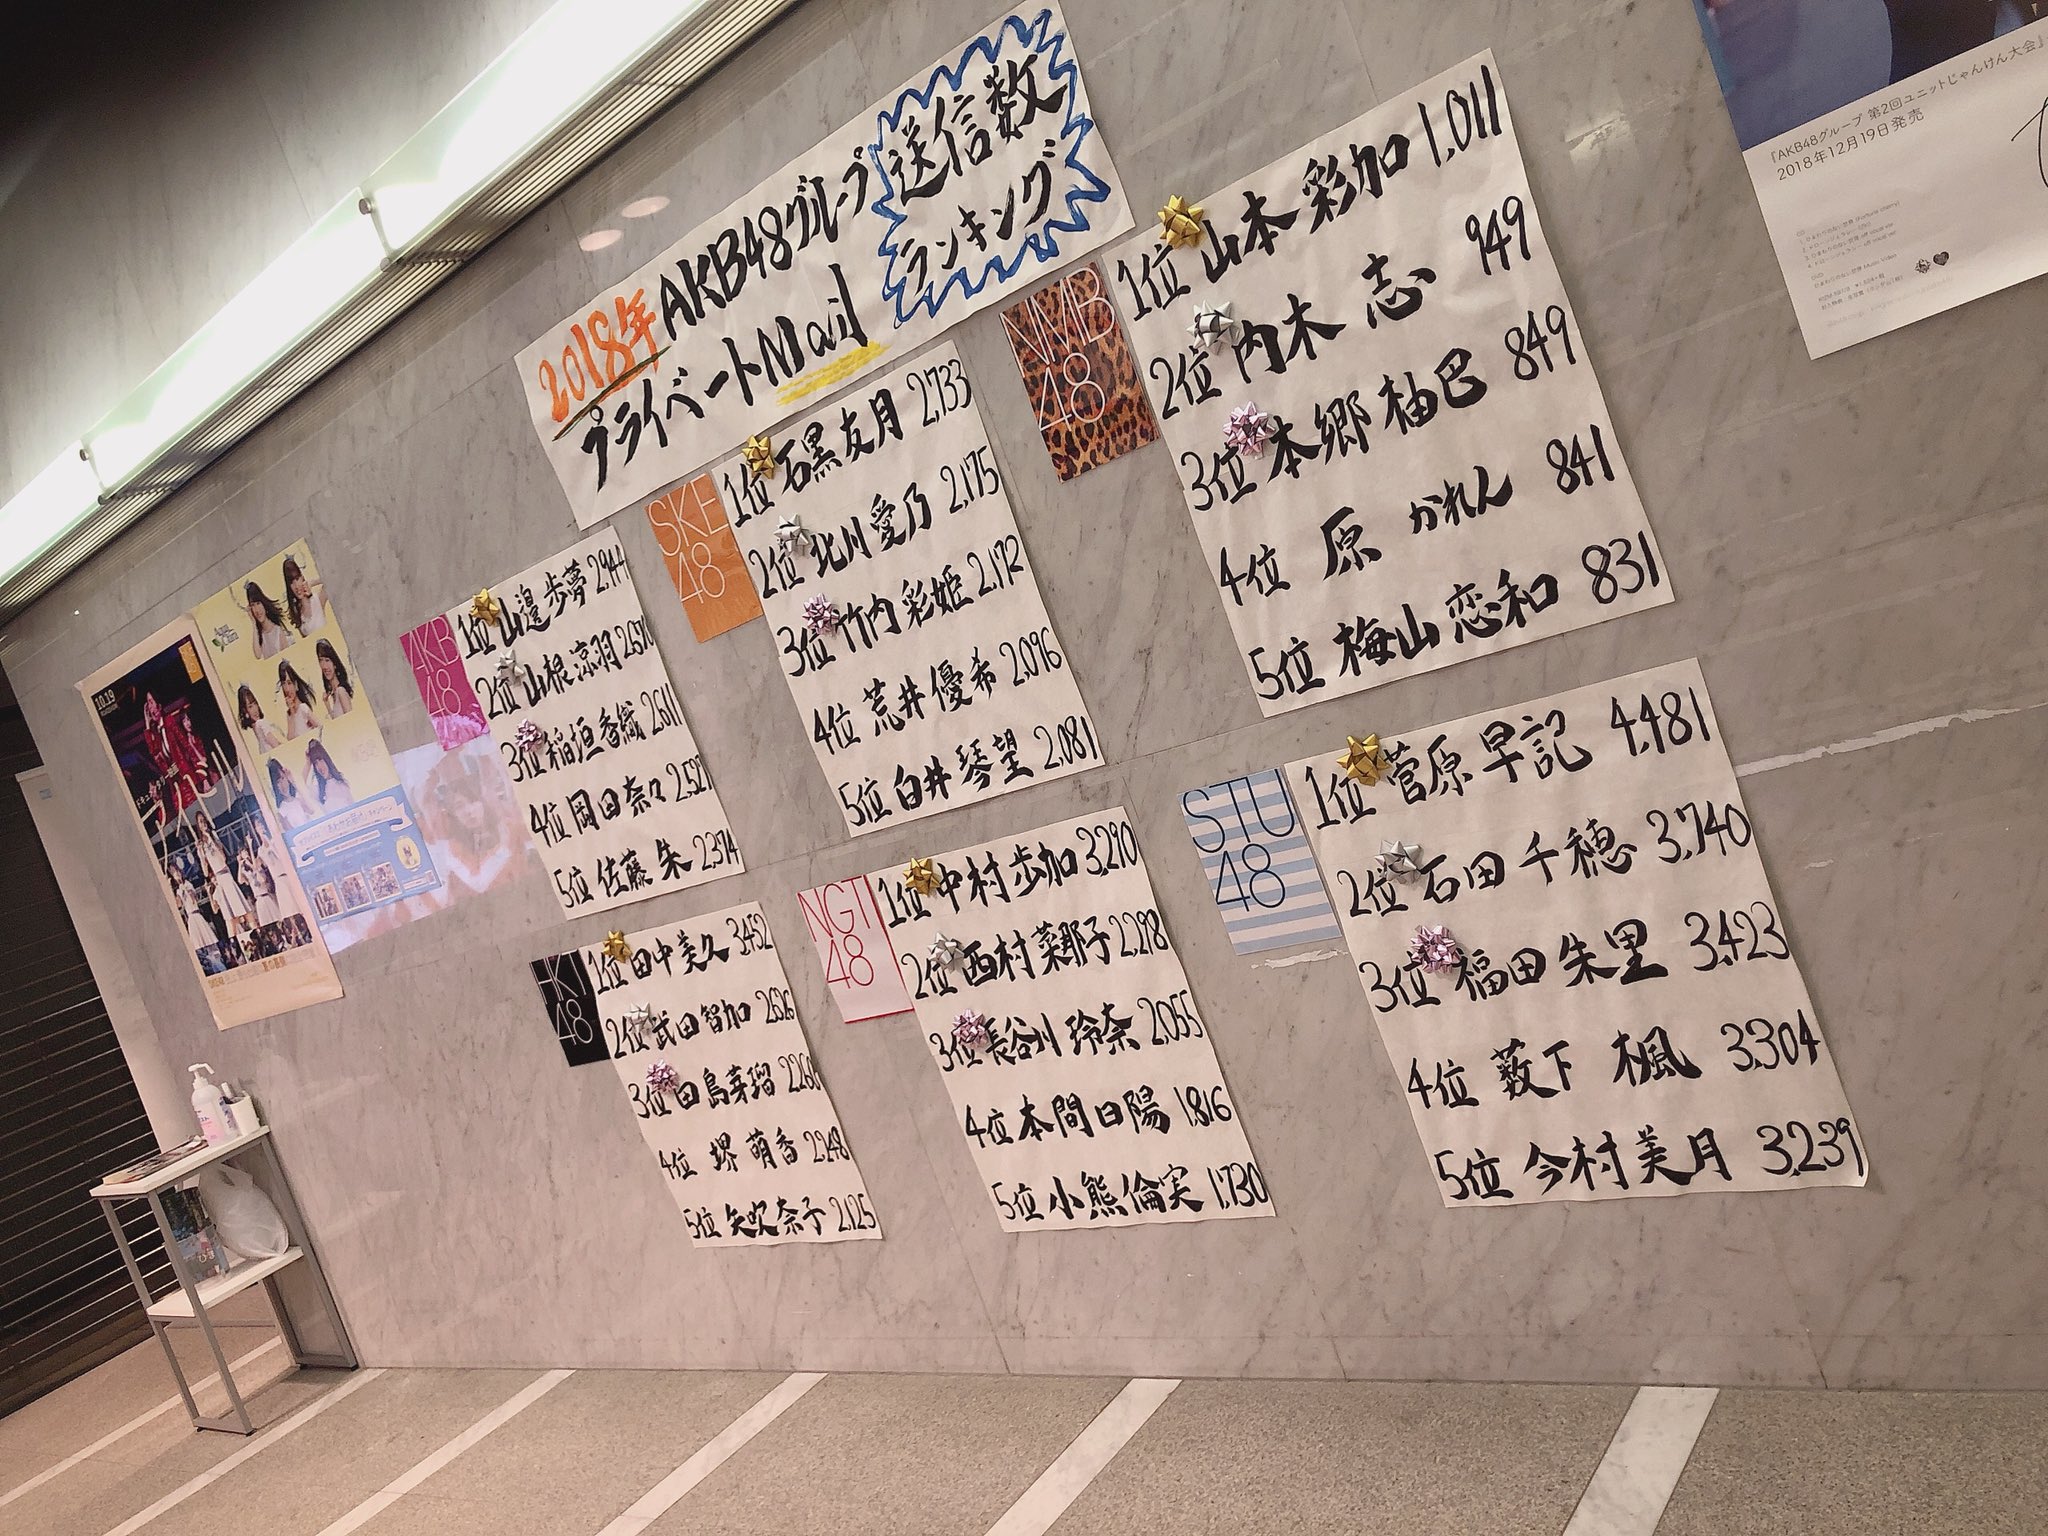 2018年 AKB48グループ
プライベートMail
送信数
ランキング
AKB
48
1位 山邊歩夢 2,944
2位 山根涼羽 2,670
3位 稲垣香織 2,611
4位 岡田奈々 2,527
5位 佐藤 朱 2,374
SKE
48
1位 石黒友月 2,733
2位 北川愛乃 2,175
3位 竹内彩姫 2,172
4位 荒井優希 2,096
5位 白井琴望 2,081
NMB
48
1位 山本彩加 1,011
2位 内木 志 949
3位 本郷柚巴 849
4位 原 かれん 841
5位 梅山恋和 831
HKT
48
1位 田中美久 3,452
2位 武田智加 2,626
3位 田島芽瑠
4位 堺 萌香 2,248
5位 矢吹奈子 2,125
NGT
48
1位 中村歩加 3,290
2位 西村菜那子 2,298
3位 長谷川玲奈 2,055
4位 本間日陽 1,816
5位 小熊倫実 1,730
STU
48
1位 菅原早記 4,481
2位 石田千穂 3,740
3位 福田朱里 3,423
4位 薮下 楓 3,304
5位 今村美月 3,239
『AKB48グループ 第2回ユニットじゃんけん大会』
2018年12月19日発売
10.19